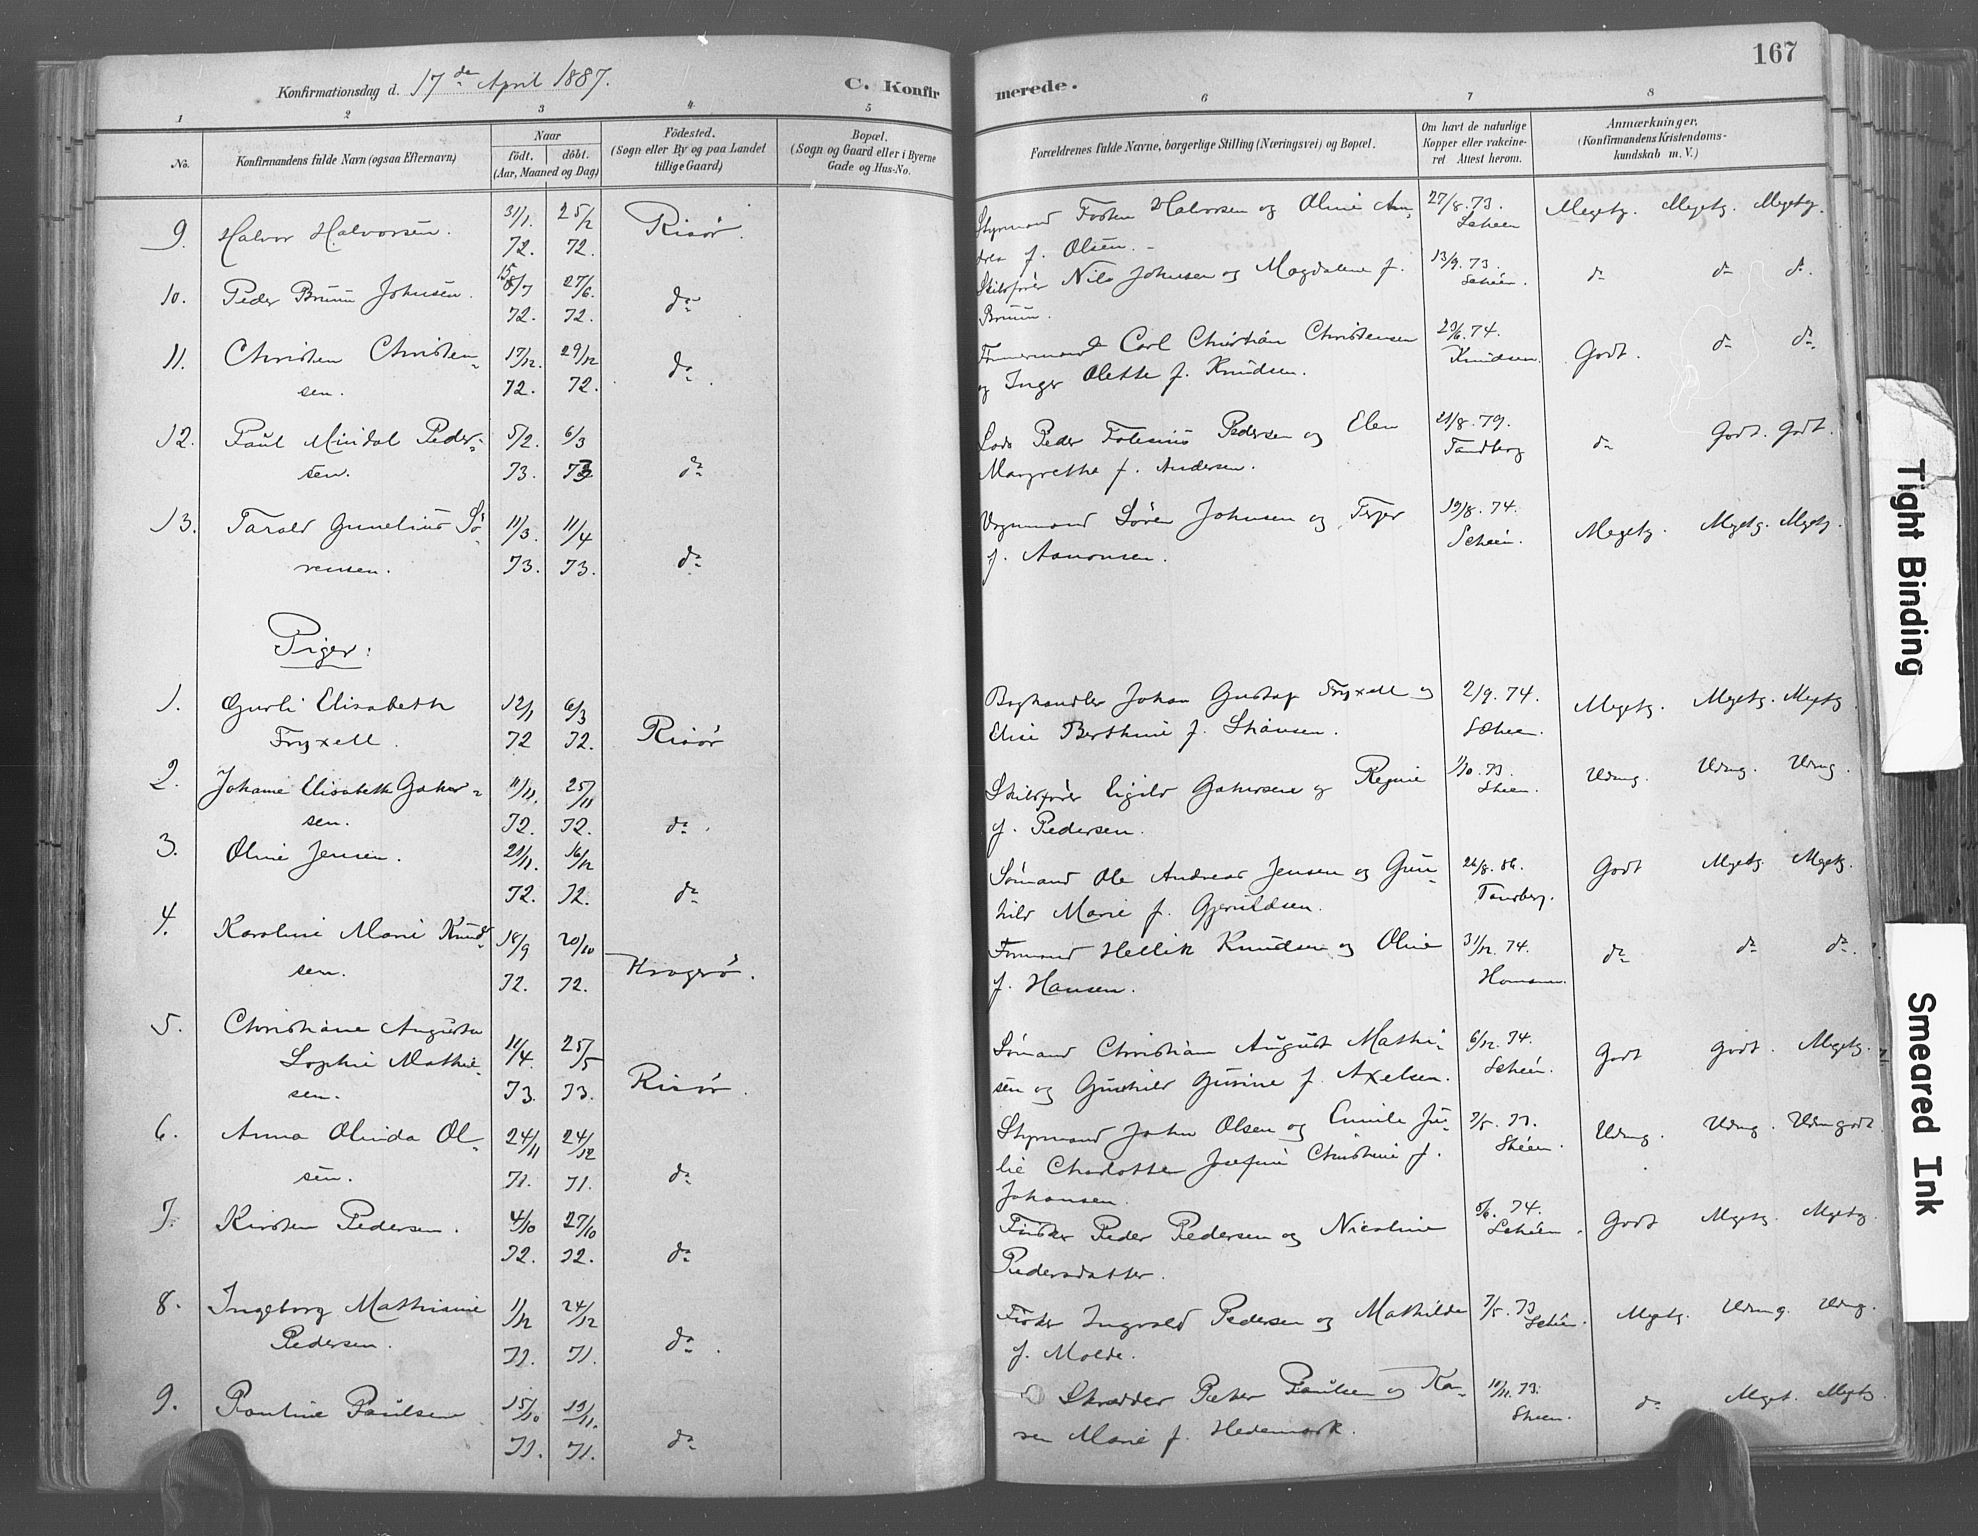 167
Konfirmationsdag d. 17de April 1887.
C. Konfirmerede.
1 2 3 4 5 6 7 8
No.
Konfirmandens fulde Navn (ogsaa Efternavn)
Naar
födt. döbt.
(Aar, Maaned og Dag)
Födested.
(Sogn eller By og paa Landet
tillige Gaard)
Bopæl.
(Sogn og Gaard eller i Byerne
Gade og Hus-No.
Forældrenes fulde Navne, borgerlige Stilling (Næringsvei) og Bopæl.
Om havt de naturlige
Kopper eller vakcine-
ret Attest herom.
Anmærkninger.
(Konfirmandens Kristendoms-
kundskab m. V.)
9. Halvor Halvorsen. 31/1. 72. 25/2 72. Risør.
Styrmand Halvorsen og Oline An-
drea f. Olsen.
27/8. 73. Scheen Megetg. Megetg. Megetg.
10. Peder Bruun Johnsen. 72. 27/6. 72. do
Skibsfører Nils Johnsen og Magdalene f.
Bruun.
13/9. 73. Scheen. do do do
11. Christen Christen-
sen. 17/12. 72. 29/12 72. do
Tømmermand Carl Christian Christensen
og Inger Olette f. Knudsen.
74. Knudsen. Godt. do do
12. Paul Mindal Peder-
sen. 5/2. 73. 6/3 73 do
Lods Peder Pedersen og Elen
Margrethe f. Andersen.
21/8. 79. Tandberg do Godt. Godt.
13. Tarald Gunelius Sö-
rensen. 11/3. 73. 11/4 73. do
Sören Johnsen og Terjer
f. Aanonsen.
19/8. 74. Scheen. Megetg. Megetg. Megetg.
Piger:
1. Gurli Elisabeth
Fryxell. 12/1 72 6/3 72. Risør
Boghandler Johan Gustaf Fryxell og
Elise Berthine f. Stiansen.
2/9. 74. Scheen. Megetg. Megetg. Megetg
2. Johanne Elisabeth Gahr-
sen. 11/11. 72. 25/11 72. do
Skibsfører Eigild og Regine
f. Pedersen.
1/10. 73. Skeen. Udmg. Udmg. Udmg.
3. Oline Jensen. 21/11. 72. 16/12 72. do
Sømand Ole Andreas Jensen og Gun-
hild Marie f. Gjeruldsen.
26/8. 86. Tandberg. Godt Megetg. Megetg.
4. Karoline Marie Knud-
sen. 18/9 72. 20/10 72. Kragerö.
Formand Hellik Knudsen og Oline
f. Hansen.
31/12. 74. Homann. do do do
5. Christiane Augusta
Sophie Mathie-
sen. 11/4. 73. 25/5 73. Risør.
Sømand Christian August Mathi-
sen og Gunhild Gurine f. Axelsen.
6/12. 74. Scheen. Godt Godt. Megetg.
6. Anna Olinda Ol-
sen. 24/11 71. 24/12 71. do
Styrmand John Olsen og Emilie Ju-
lie Charlotte Josefine Christine f.
Johansen.
7/5. 73. Skeen. Udmg. Udmg. Udmgodt
7. Kirsten Pedersen. 4/10 72. 27/10 72. do
Fisker Peder Pedersen og Nicoline
Pedersdatter.
8/6. 74. Scheen. Godt Megetg. Megetg.
8. Ingeborg Mathisine
Pedersen. 1/12 71. 24/12 71. do
Fisker Ingvald Pedersen og Mathilde
f. Molde.
7/5. 73 Scheen. Megetg. Udmg. Udmg.
9. Pauline Paulsen 15/10 71. 19/11. 71. do
Skrædder Peter Paulsen og Ka-
ren Marie f. Hedemark.
73. Skeen. do Meget. Megetg.
Tight Binding
Smeared Ink